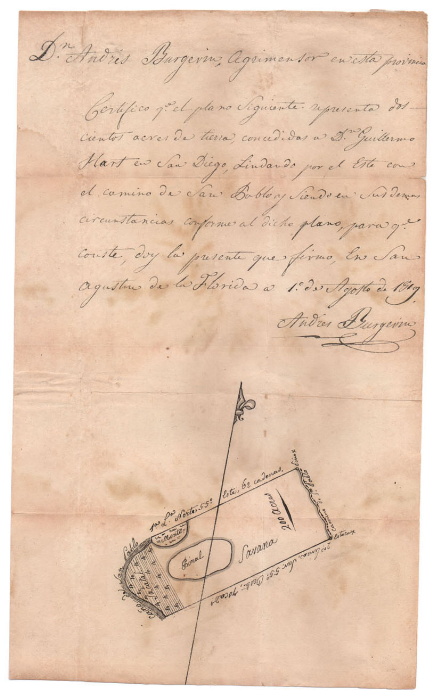 Dn. Andres Burgevin, Agrimensor en esta provincia
Certifico qe. el plano Siguiente representa dos-
cientos acres de tierra concedidas a Dn. Guillermo
Hart en San Diego, Lindando por el Este con
el camino de San Pablo, y Siendo en Sus demas
circunstancias conforme al dicho plano, para qe.
conste, doy la presente que firmo, En San
Agustin de la Florida a 1º. de Agosto de 1819
Andres Burgevin
1ra. La. Norte 55º Este, 62 cadenas,
Monte
Pinal
Savana
200 acres
San Pablo